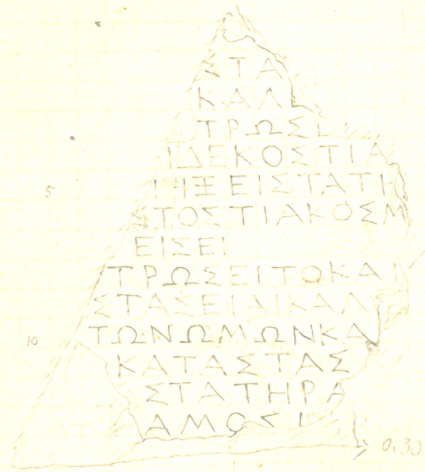 ΣΤΑ
ΚΑΛ
ΤΡΩΣ
ΙΔΕΚΟΣΤΙΑ
ΗΞΕΙΣΤΑΤΗ
5
ΣΤΟΣΤΙΑΚΟΣΜ
ΕΙΣΕΙ
ΤΡΩΣΕΙΤΟΚΑΙ
ΣΤΑΣΕΙΔΙΚΑΛ
10 ΤΩΝΩΜΩΝΚΑ
ΚΑΤΑΣΤΑΣ
ΣΤΑΤΗΡΑ
ΑΜΟΣΙ
0,30